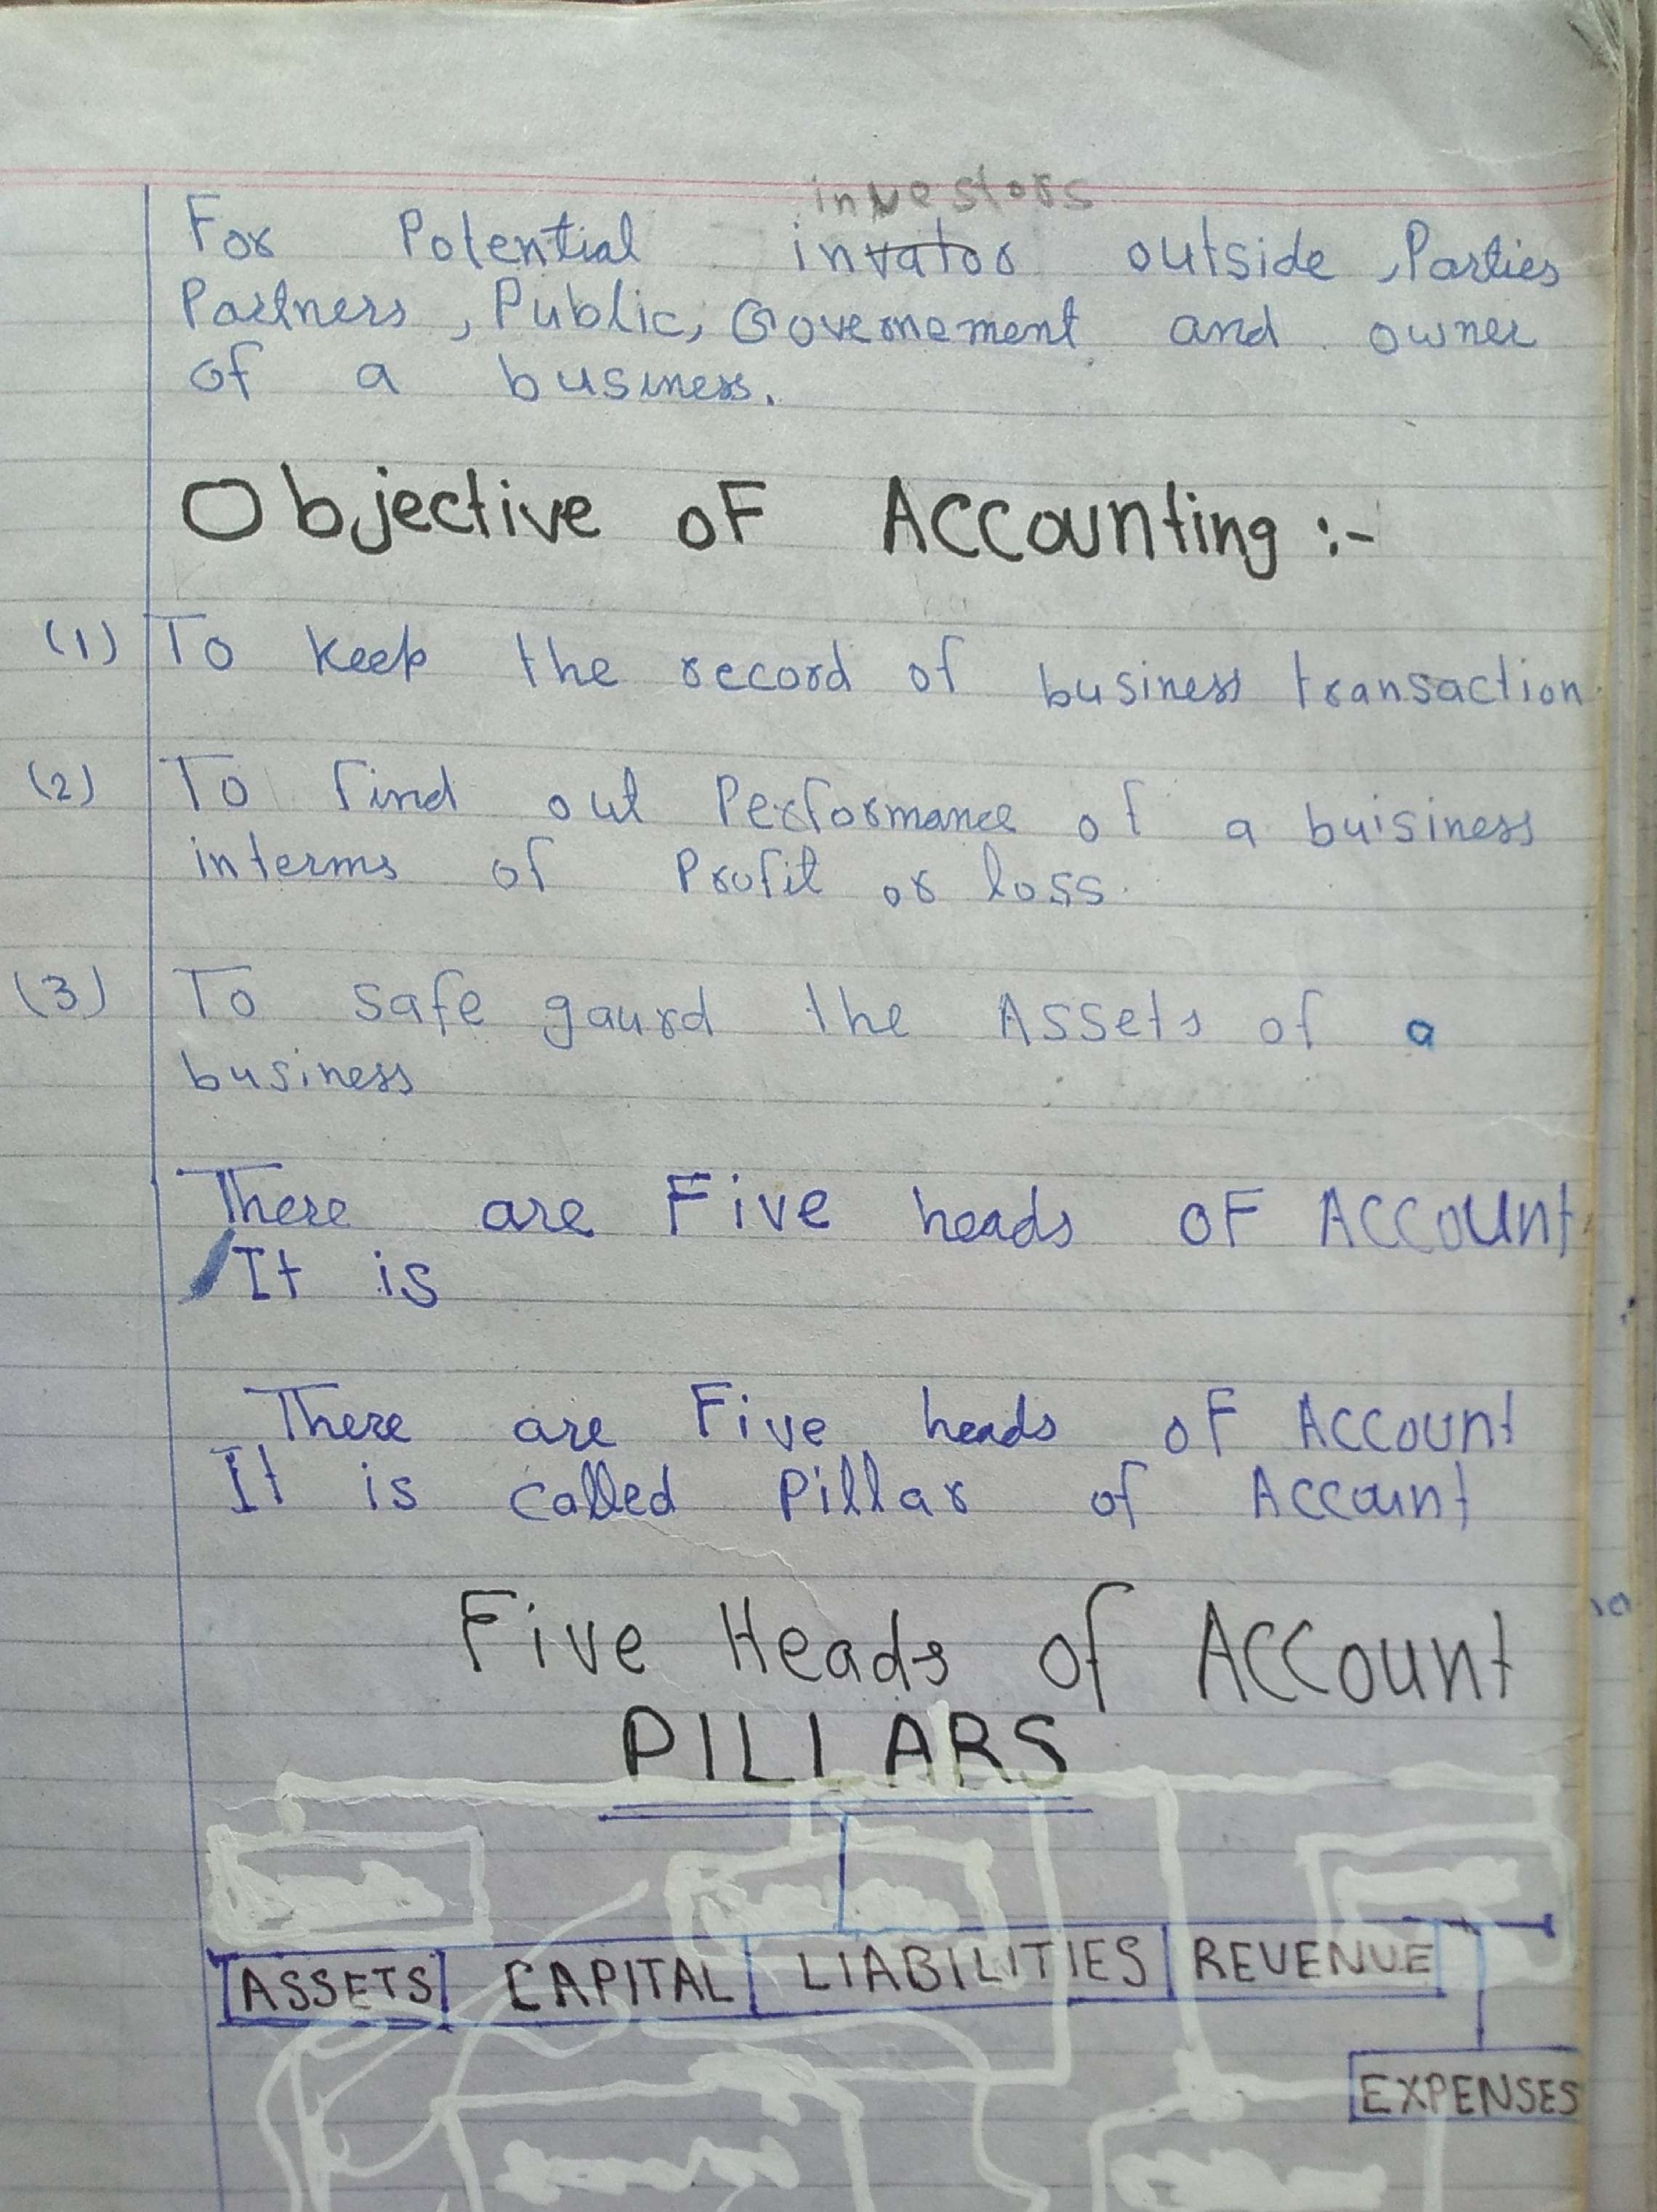 investors
For Potential invator outside, Parties
Partners, Public, Governement and owner
of a business.
Objective oF Accounting :-
(1) To keep the record of business transaction
(2) To find out Performance of a buisiness
interms of Profit or loss.
(3) To safe gaurd the Assets of a
business
There are Five heads oF Account
It is
There are Five heads oF Account
It is called Pillar of Account
Five Heads of Account
PILLARS
ASSETS CAPITAL LIABILITIES REVENUE
EXPENSES